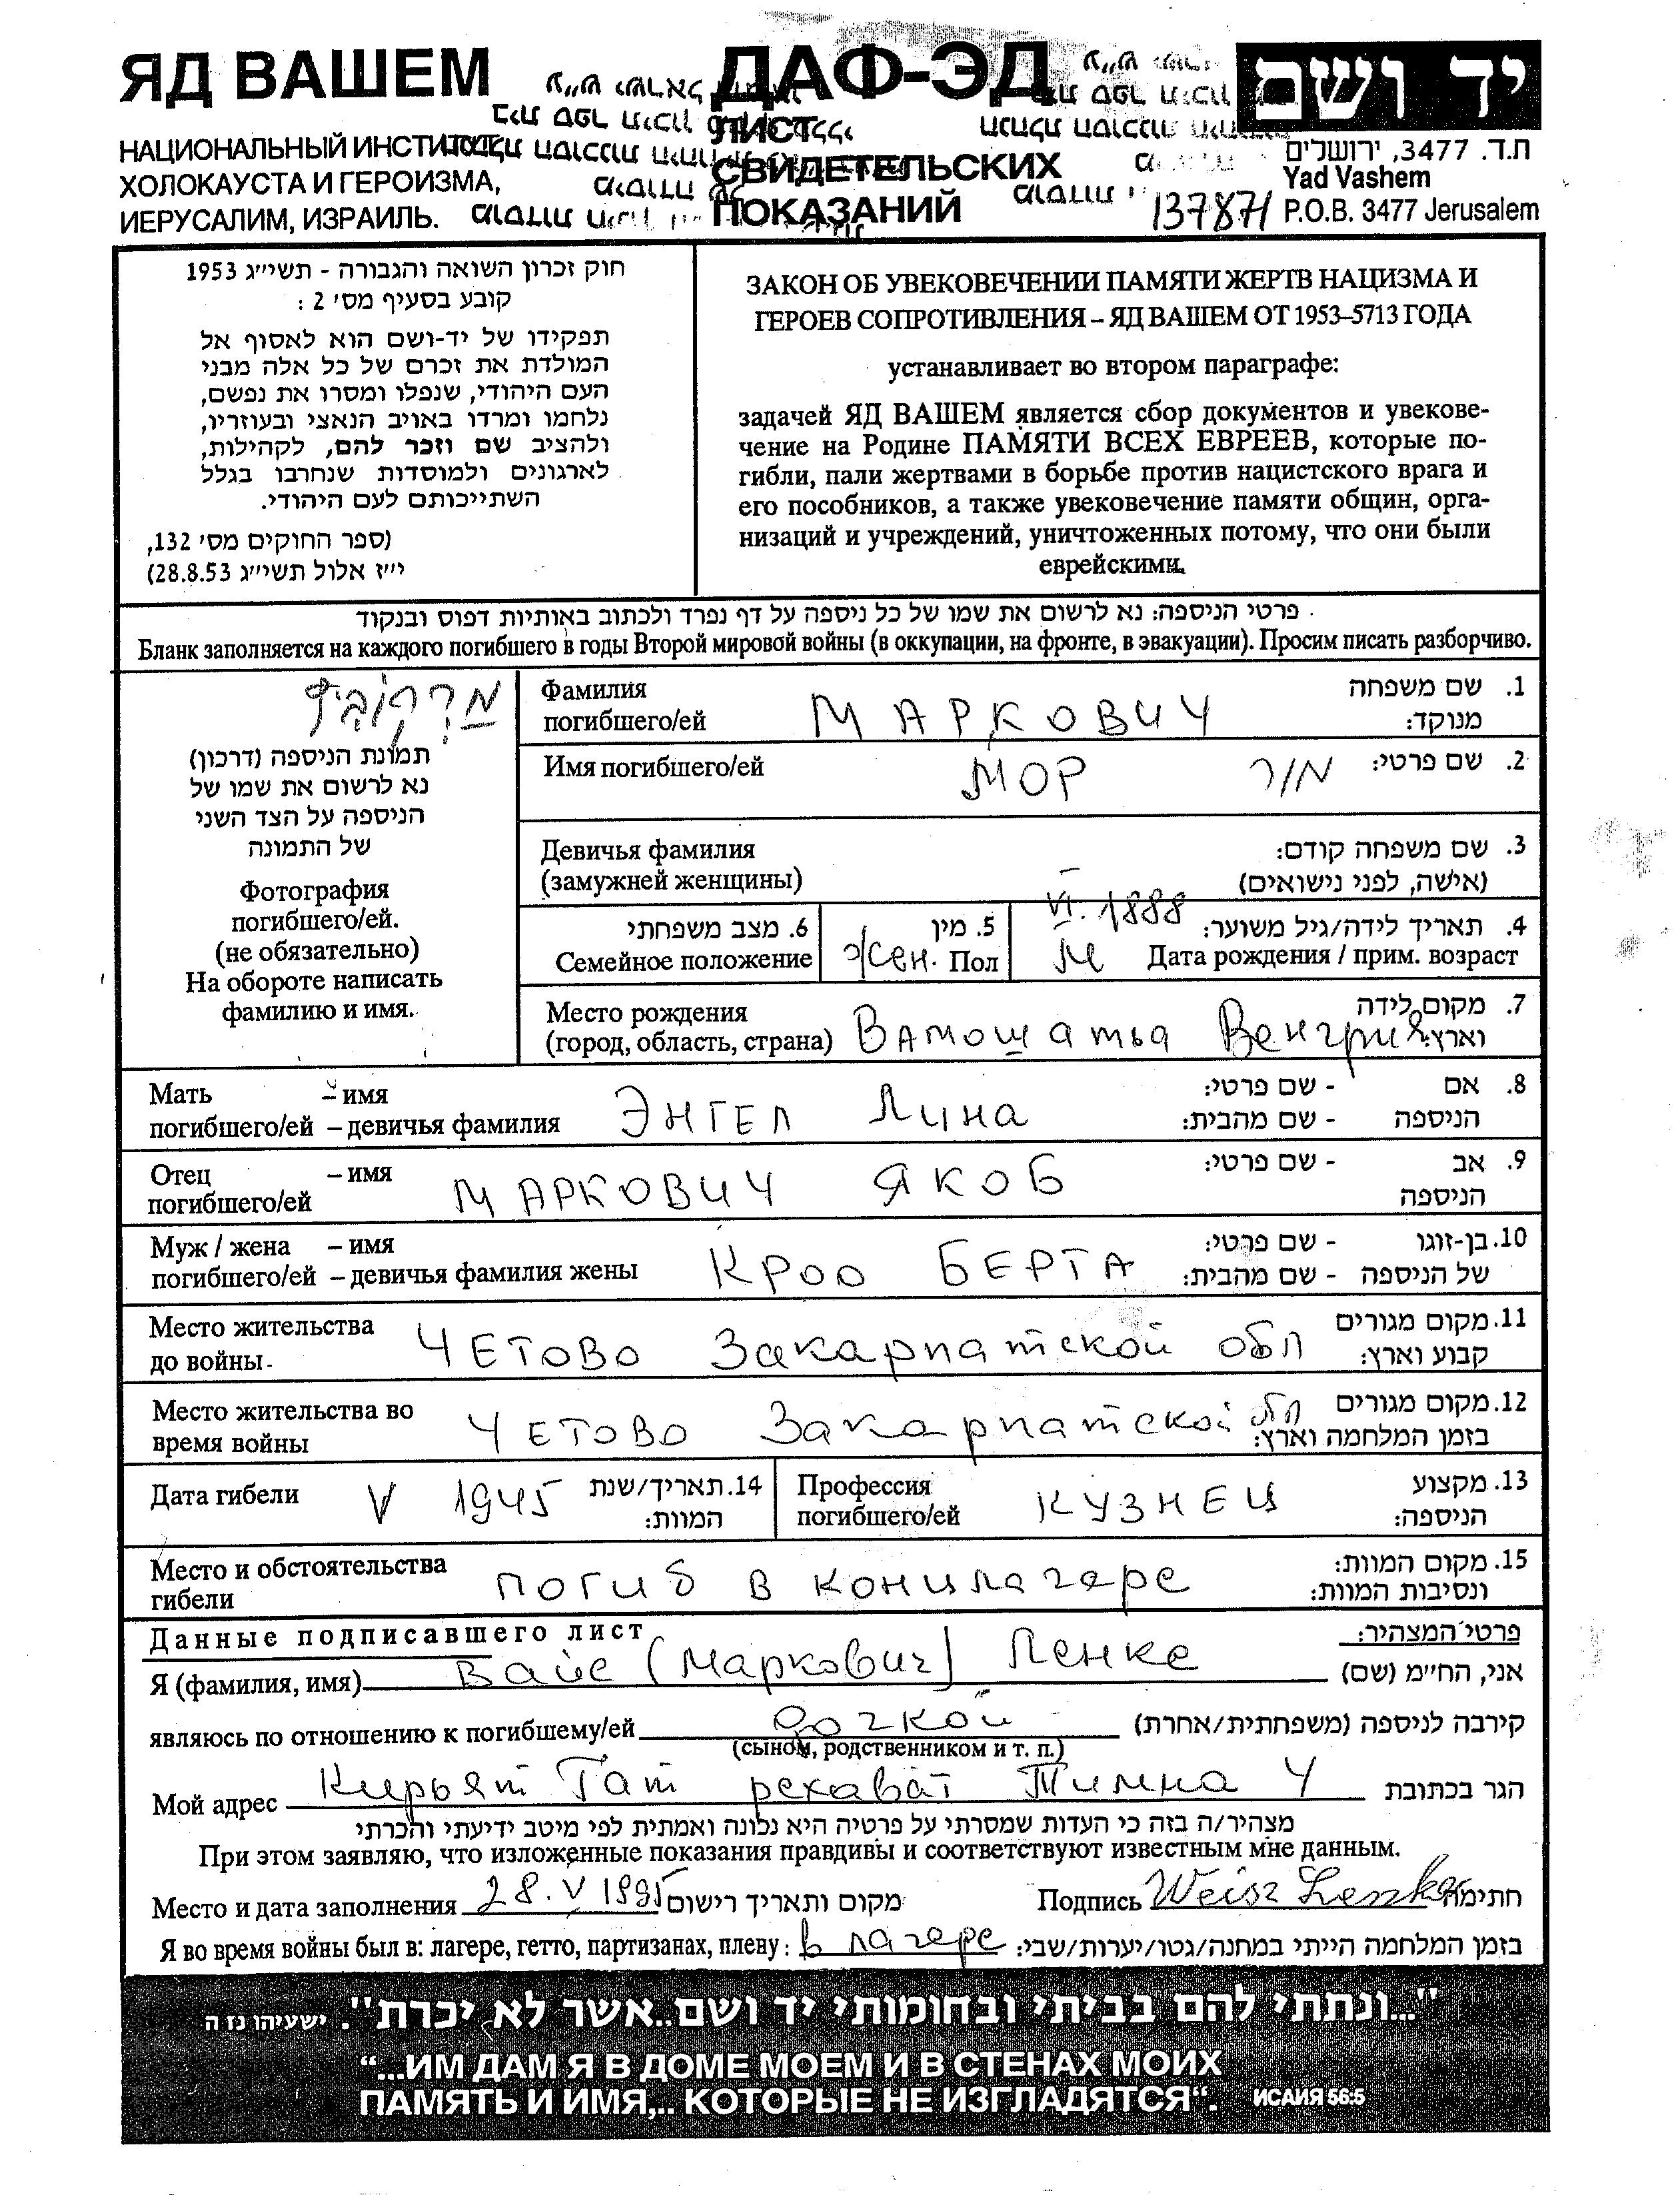 ЯД ВАШЕМ
НАЦИОНАЛЬНЫЙ ИНСТИТУТ
ХОЛОКАУСТА И ГЕРОИЗМА,
ИЕРУСАЛИМ, ИЗРАИЛЬ.
ДАФ-ЭД
ЛИСТ
СВИДЕТЕЛЬСКИХ
ПОКАЗАНИЙ
137871
יד ושם
ת.ד. 3477, ירושלים
Yad Vashem
P.O.B. 3477 Jerusalem
חוק זכרון השואה והגבורה - תשי״ג 1953
קובע בסעיף מס׳ 2 :
תפקידו של יד-ושם הוא לאסוף אל
המולדת את זכרם של כל אלה מבני
העם היהודי, שנפלו ומסרו את נפשם,
נלחמו ומרדו באויב הנאצי ובעוזריו,
ולהציב שם וזכר להם, לקהילות,
לארגונים ולמוסדות שנחרבו בגלל
השתייכותם לעם היהודי.
(ספר החוקים מס׳ 132,
י״ז אלול תשי״ג 28.8.53)
ЗАКОН ОБ УВЕКОВЕЧЕНИИ ПАМЯТИ ЖЕРТВ НАЦИЗМА И
ГЕРОЕВ СОПРОТИВЛЕНИЯ – ЯД ВАШЕМ ОТ 1953–5713 ГОДА
устанавливает во втором параграфе:
задачей ЯД ВАШЕМ является сбор документов и увекове-
чение на Родине ПАМЯТИ ВСЕХ ЕВРЕЕВ, которые по-
гибли, пали жертвами в борьбе против нацистского врага и
его пособников, а также увековечение памяти общин, орга-
низаций и учреждений, уничтоженных потому, что они были
еврейскими.
פרטי הניספה: נא לרשום את שמו של כל ניספה על דף נפרד ולכתוב באותיות דפוס ובנקוד
Бланк заполняется на каждого погибшего в годы Второй мировой войны (в оккупации, на фронте, в эвакуации). Просим писать разборчиво.
מַרְקוֹבִיץ
תמונת הניספה (דרכון)
נא לרשום את שמו של
הניספה על הצד השני
של התמונה
Фотография
погибшего/ей.
(не обязательно)
На обороте написать
фамилию и имя.
Фамилия
погибшего/ей МАРКОВИЧ 1. שם משפחה
מנוקד:
Имя погибшего/ей МОР מור 2. שם פרטי:
Девичья фамилия 3. שם משפחה קודם:
(замужней женщины) (אישה, לפני נישואים)
6. מצב משפחתי
Семейное положение жен. 5. מין
Пол М VI. 1888 4. תאריך לידה/גיל משוער:
Дата рождения / прим. возраст
Место рождения
(город, область, страна) Вамошатья Венгрия 7. מקום לידה
וארץ:
Мать – имя 8. אם - שם פרטי:
погибшего/ей – девичья фамилия ЭНГЕЛ Лина הניספה - שם מהבית:
Отец – имя 9. אב - שם פרטי:
погибшего/ей МАРКОВИЧ ЯКОБ הניספה
Муж / жена – имя 10. בן-זוגו - שם פרטי:
погибшего/ей – девичья фамилия жены КРОО БЕРТА של הניספה - שם מהבית:
Место жительства 11. מקום מגורים
до войны ЧЕТОВО Закарпатской обл קבוע וארץ:
Место жительства во 12. מקום מגורים
время войны ЧЕТОВО Закарпатской בזמן המלחמה וארץ:
Дата гибели V 1945 14. תאריך/שנת
המוות:
Профессия 13. מקצוע
погибшего/ей КУЗНЕЦ הניספה:
Место и обстоятельства 15. מקום המוות:
гибели погиб в концлагере ונסיבות המוות:
Данные подписавшего лист פרטי המצהיר:
Я (фамилия, имя) Вайс (Маркович) Ленке אני, הח״מ (שם)
являюсь по отношению к погибшему/ей дочкой קירבה לניספה (משפחתית/אחרת)
(сыном, родственником и т. п.)
Мой адрес Кирьят Гат рехават Тимна 4 הגר בכתובת
מצהיר/ה בזה כי העדות שמסרתי על פרטיה היא נכונה ואמתית לפי מיטב ידיעתי והכרתי
При этом заявляю, что изложенные показания правдивы и соответствуют известным мне данным.
Место и дата заполнения 28. V 1995 מקום ותאריך רישום Подпись Weisz Lenke חתימה
Я во время войны был в: лагере, гетто, партизанах, плену: в лагере בזמן המלחמה הייתי במחנה/גטו/יערות/שבי:
"...ונתתי להם בביתי ובחומותי יד ושם..אשר לא יכרת". ישעיהו נו ה
“...ИМ ДАМ Я В ДОМЕ МОЕМ И В СТЕНАХ МОИХ
ПАМЯТЬ И ИМЯ,.. КОТОРЫЕ НЕ ИЗГЛАДЯТСЯ“. ИСАИЯ 56:5